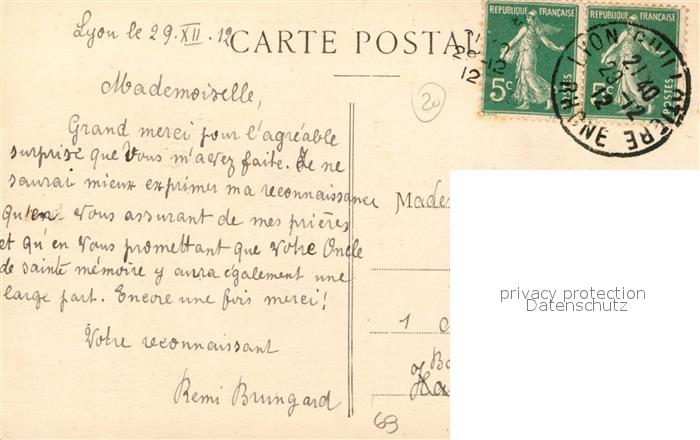 Lyon le 29.XII.12
CARTE POSTAL
RÉPUBLIQUE FRANÇAISE
5c
POSTES
RÉPUBLIQUE FRANÇAISE
5c
POSTES
LYON GUILLOTIERE
RHONE
21 40
29-12
12
12
20
Mademoiselle,
Grand merci pour l'agréable
surprise que Vous m'avez faite. Je ne
saurai mieux exprimer ma reconnaissance
qu'en Vous assurant de mes prières
et qu'en Vous promettant que Votre Oncle
de sainte mémoire y aura également une
large part. Encore une fois merci!
Votre reconnaissant
Remi Brungard
Made
1
69
privacy protection
Datenschutz